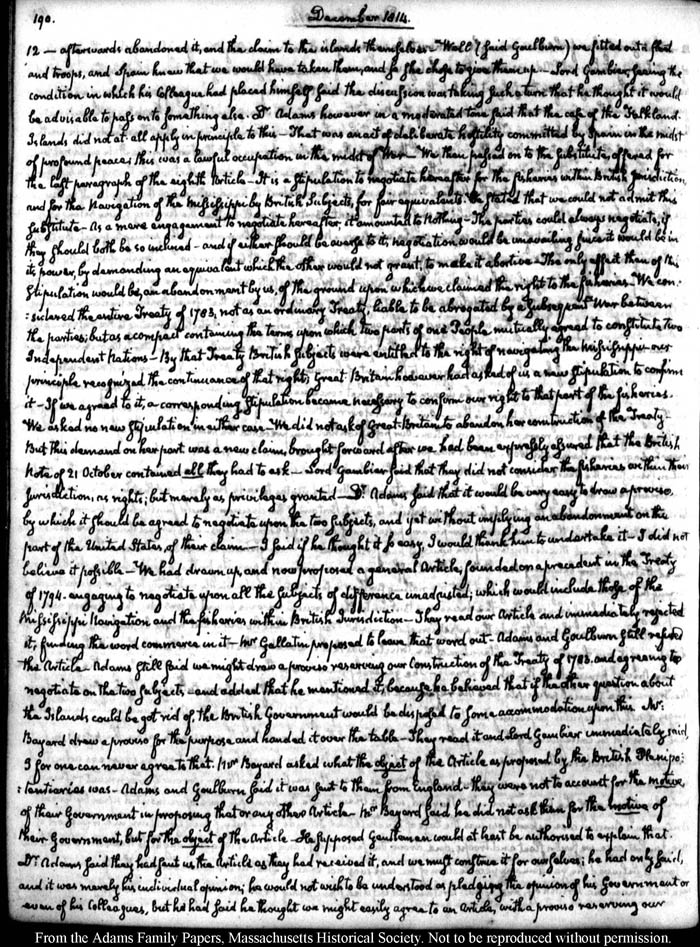 190.
December 1814.
12 — afterwards abandoned it, and the claim to the islands themselves — Well (said Goulburn) we fitted out a fleet
and troops, and Spain knew that we would have taken them, and so she chose to give them up — Lord Gambier, seeing the
condition in which his Colleague had placed himself said the discussion was taking such a turn that he thought it would
be advisable to pass on to something else. Dr. Adams however in a moderated tone said that the case of the Falkland
Islands did not at all apply in principle to this — That was an act of deliberate hostility committed by Spain in the midst
of profound peace; this was a lawful occupation in the midst of War — We then passed on to the substitute, offered for
the last paragraph of the eighth Article — It is a stipulation to negotiate hereafter for the fisheries within British jurisdiction
and for the Navigation of the Mississippi by British Subjects, for fair equivalents. We stated that we could not admit this
substitute — As a mere engagement to negotiate hereafter, it amounted to Nothing — The parties could always negotiate, if
they should both be so inclined — and if either should be averse to it, negotiation would be unavailing since it would be in
its power, by demanding an equivalent which the other would not grant, to make it abortive — The only effect then of this
stipulation would be, an abandonment by us, of the ground upon which we claimed the right to the fisheries — We con-
:sidered the entire Treaty of 1783, not as an ordinary Treaty, liable to be abrogated by a subsequent War between
the parties; but as a compact containing the terms upon which two parts of one People mutually agreed to constitute two
Independent Nations — By that Treaty British Subjects were entitled to the right of navigating the Mississippi — our
principle recognized the continuance of that right; Great Britain however had asked of us a new stipulation to confirm
it — If we agreed to it, a corresponding stipulation became necessary to confirm our right to that part of the fisheries.
We asked no new stipulation in either case — We did not ask of Great-Britain to abandon her construction of the Treaty —
But this demand on her part was a new claim, brought forward after we had been expressly assured that the British
Note of 21 October contained all they had to ask — Lord Gambier said that they did not consider the fisheries within their
Jurisdiction, as rights; but merely as privileges granted — Dr. Adams said that it would be very easy to draw a proviso,
by which it should be agreed to negotiate upon the two subjects, and yet without implying an abandonment on the
part of the United States, of their claim — I said if he thought it so easy, I would thank him to undertake it — I did not
believe it possible — We had drawn up, and now proposed a general Article, founded on a precedent in the Treaty
of 1794. engaging to negotiate upon all the subjects of difference unadjusted; which would include those of the
Mississippi Navigation and the fisheries within British Jurisdiction — They read our Article and immediately rejected
it, finding the word commerce in it — Mr Gallatin proposed to leave that word out — Adams and Goulburn still refused
the Article — Adams still said we might draw a proviso reserving our Construction of the Treaty of 1783. and agreeing to
negotiate on the two subjects — and added that he mentioned it, because he believed that if the other question about
the Islands could be got rid of, the British Government would be disposed to some accommodation upon this. Mr.
Bayard drew a proviso for the purpose and handed it over the table — They read it and Lord Gambier immediately said,
I for one can never agree to that. Mr Bayard asked what the object of the Article as proposed by the British Plenipo:
:tentiaries was — Adams and Goulburn said it was sent to them from England — they were not to account for the motive,
of their Government in proposing that or any other Article — Mr Bayard said he did not ask them for the motive of
their Government, but for the object of the Article — He supposed Gentlemen would at least be authorised to explain that.
Dr. Adams said they had sent us the Article as they had received it, and we must construe it for ourselves; he had only said,
and it was merely his individual opinion; he would not wish to be understood as pledging the opinion of his Government or
even of his Colleagues, but he had said he thought we might easily agree to an Article, with a proviso reserving our
From the Adams Family Papers, Massachusetts Historical Society. Not to be reproduced without permission.